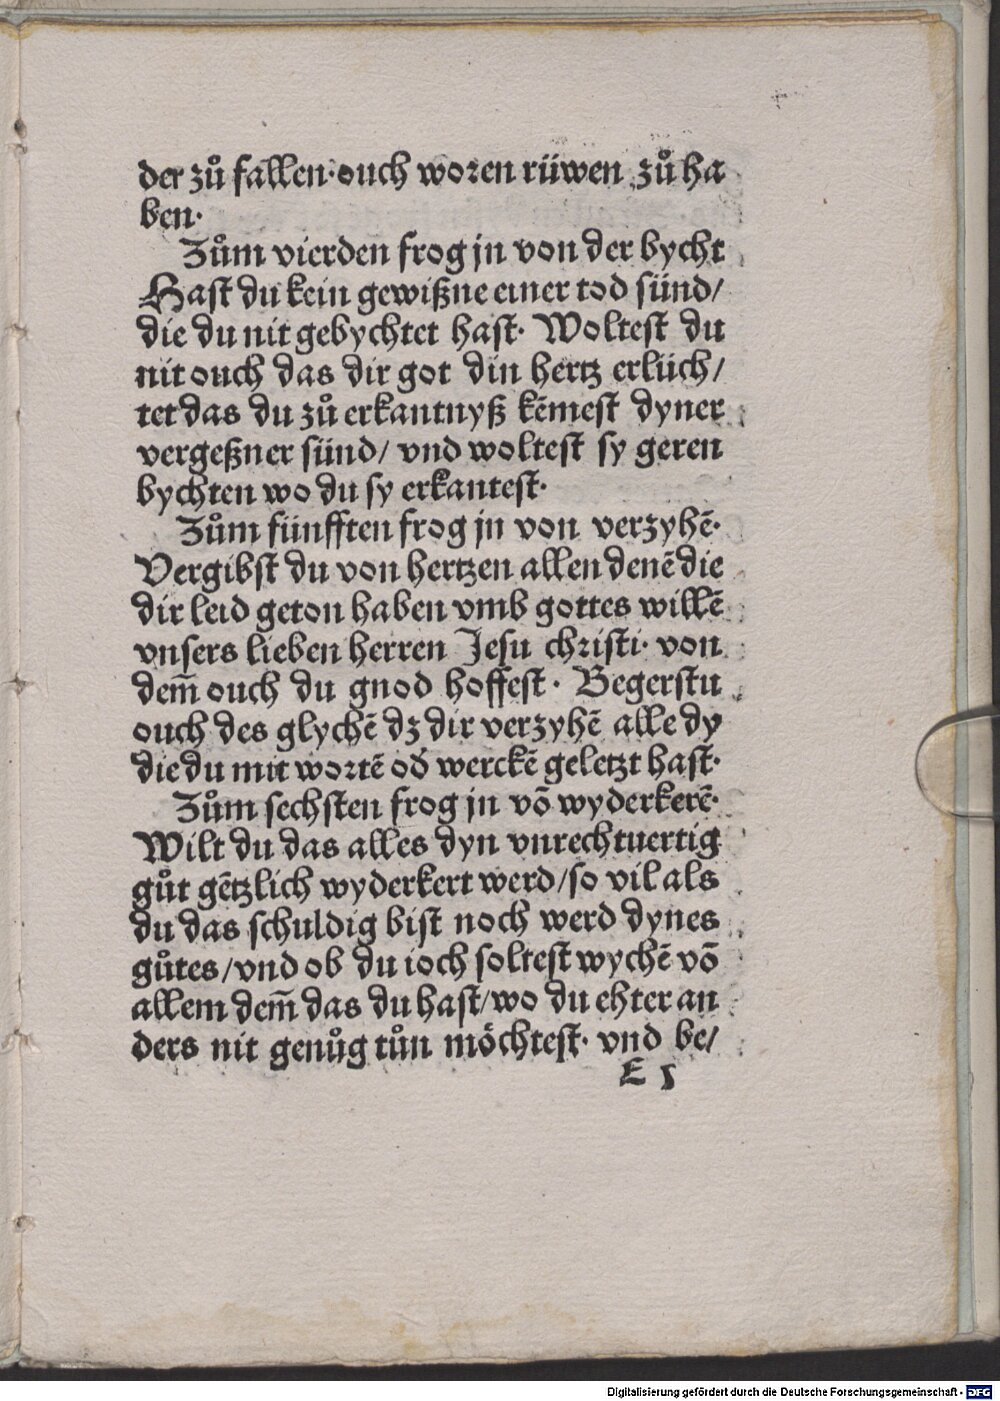 der zů fallen·ouch woren rüwen zů ha
ben·
Zům vierden frog jn von der bycht
Hast du kein gewißne einer tod sünd/
die du nit gebychtet hast· Woltest du
nit ouch das dir got din hertz erlüch/
tet das du zů erkantnyß kēmest dyner
vergeßner sünd/ vnd woltest sy geren
bychten wo du sy erkantest·
Zům fünfften frog jn von verzyhē·
Vergibst du von hertzen allen denē die
dir leid geton haben vmb gottes willē
vnsers lieben herren Jesu christi· von
dem̄ ouch du gnod hoffest· Begerstu
ouch des glychē dz dir verzyhē alle dy
die du mit wortē od̛ werckē geletzt hast·
Zům sechsten frog jn vō wyderkerē·
Wilt du das alles dyn vnrechtuertig
gůt gētzlich wyderkert werd/so vil als
du das schuldig bist noch werd dynes
gůtes/vnd ob du ioch soltest wychē vō
allem dem̄ das du hast/wo du ehter an
ders nit genůg tůn möchtest· vnd be/
E 1
Digitalisierung gefördert durch die Deutsche Forschungsgemeinschaft - DFG